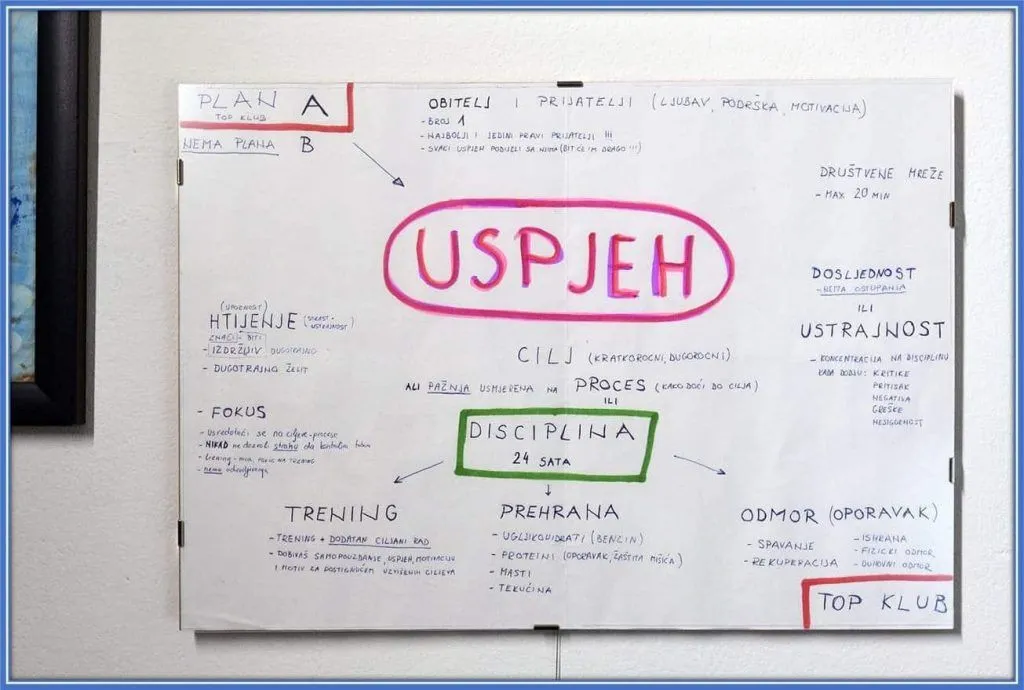 PLAN A
TOP KLUB
NEMA PLANA B
OBITELJ I PRIJATELJI (LJUBAV, PODRŠKA, MOTIVACIJA)
- BROJ 1
- NAJBOLJI I JEDINI PRAVI PRIJATELJI !!!
- SVAKI USPJEH PODIJELI SA NJIMA (BIT ĆE IM DRAGO !!!)
DRUŠTVENE MREŽE
- MAX 20 MIN
USPJEH
DOSLJEDNOST
- NEMA ODSTUPANJA
ILI
USTRAJNOST
- KONCENTRACIJA NA DISCIPLINU
KADA DOĐU: KRITIKE
PRITISAK
NEGATIVA
GREŠKE
NESIGURNOST
(UPORNOST)
HTIJENJE (STRAST - USTRAJNOST)
ZNAČI - BITI
- IZDRŽLJIV DUGOTRAJNO
- DUGOTRAJNO ŽELIT
CILJ (KRATKOROČNI, DUGOROČNI)
ALI PAŽNJA USMJERENA NA PROCES (KAKO DOĆI DO CILJA)
ILI
- FOKUS
- Usredotoči se na ciljeve - procese
- NIKAD ne dozvoli strahu da kontrolira
- nema odustajanja
DISCIPLINA
24 SATA
TRENING
- TRENING + DODATAN CILJANI RAD
- DOBIVAŠ SAMOPOUZDANJE, USPJEH, MOTIVACIJU
I MOTIV ZA POSTIGNUĆEM UZVIŠENIH CILJEVA
PREHRANA
- UGLJIKOHIDRATI (BENZIN)
- PROTEINI (OPORAVAK, ZAŠTITA MIŠIĆA)
- MASTI
- TEKUĆINA
ODMOR (OPORAVAK)
- SPAVANJE
- REKUPERACIJA
- ISHRANA
- FIZIČKI ODMOR
- DUHOVNI ODMOR
TOP KLUB